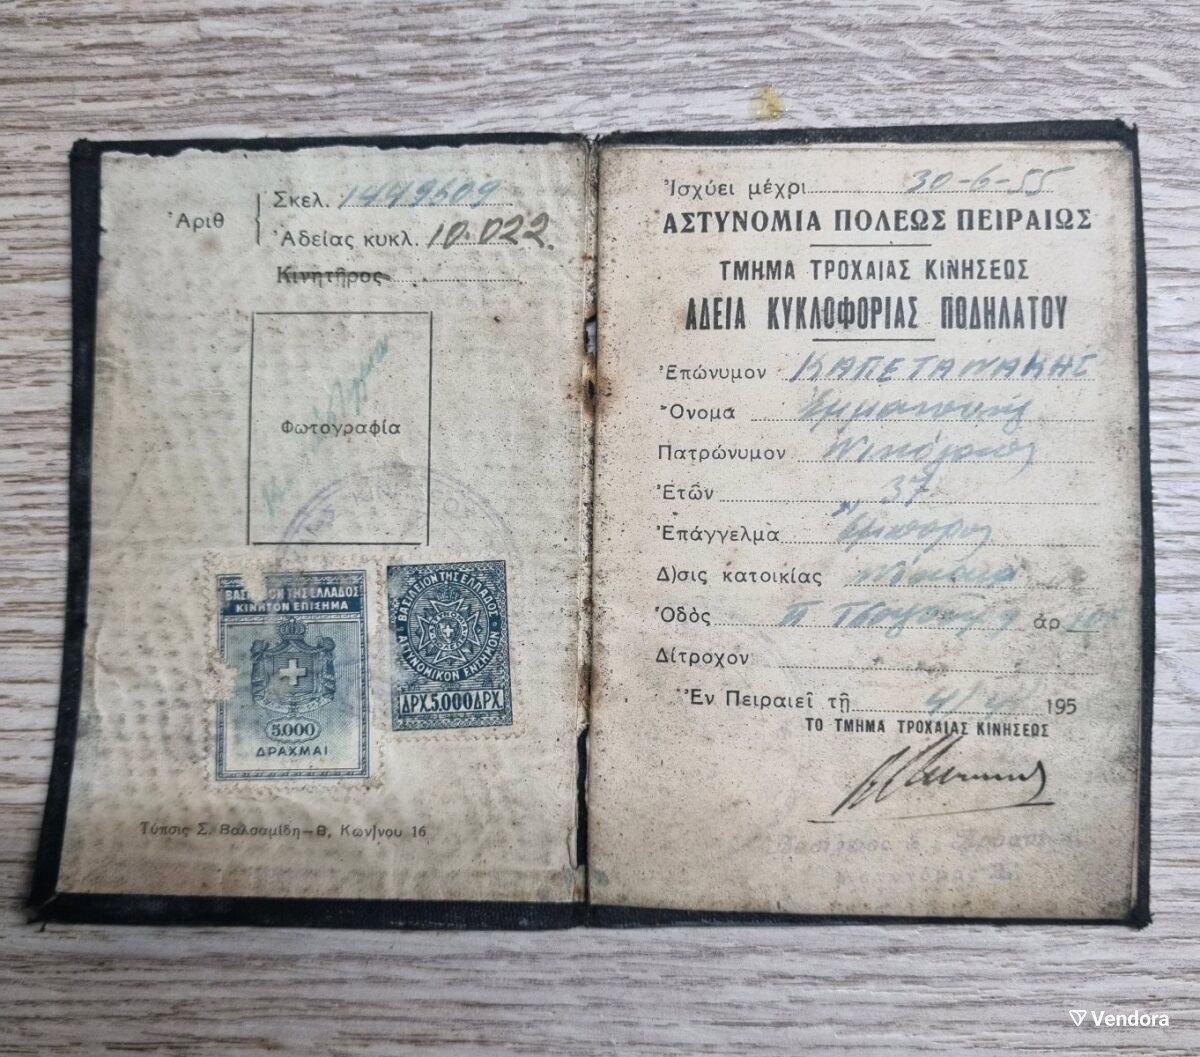 Ἀριθ
Σκελ. 1449609
Ἀδείας κυκλ. 10.022.
Κινητῆρος
Φωτογραφία
ΒΑΣΙΛΕΙΟΝ ΤΗΣ ΕΛΛΑΔΟΣ
ΚΙΝΗΤΟΝ ΕΠΙΣΗΜΑ
5.000
ΔΡΑΧΜΑΙ
ΒΑΣΙΛΕΙΟΝ ΤΗΣ ΕΛΛΑΔΟΣ
ΑΣΤΥΝΟΜΙΚΟΝ ΕΝΣΗΜΟΝ
ΔΡΧ. 5.000 ΔΡΧ.
Τύποις Σ. Βαλσαμίδη—Β, Κων)νου 16
Ἰσχύει μέχρι 30-6-55
ΑΣΤΥΝΟΜΙΑ ΠΟΛΕΩΣ ΠΕΙΡΑΙΩΣ
ΤΜΗΜΑ ΤΡΟΧΑΙΑΣ ΚΙΝΗΣΕΩΣ
ΑΔΕΙΑ ΚΥΚΛΟΦΟΡΙΑΣ ΠΟΔΗΛΑΤΟΥ
Ἐπώνυμον ΚΑΠΕΤΑΝΑΚΗΣ
Ὄνομα Ἐμμανουήλ
Πατρώνυμον Νικόλαος
Ἐτῶν 37
Ἐπάγγελμα Ἔμπορος
Δ)σις κατοικίας
Ὁδὸς Π. ἀρ 10
Δίτροχον
Ἐν Πειραιεῖ τῇ 195
ΤΟ ΤΜΗΜΑ ΤΡΟΧΑΙΑΣ ΚΙΝΗΣΕΩΣ
Vendora